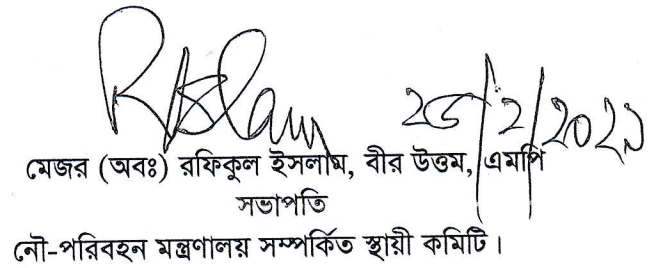 RIslam ২৫/২/২০২১
মেজর (অবঃ) রফিকুল ইসলাম, বীর উত্তম, এমপি
সভাপতি
নৌ-পরিবহন মন্ত্রণালয় সম্পর্কিত স্থায়ী কমিটি।